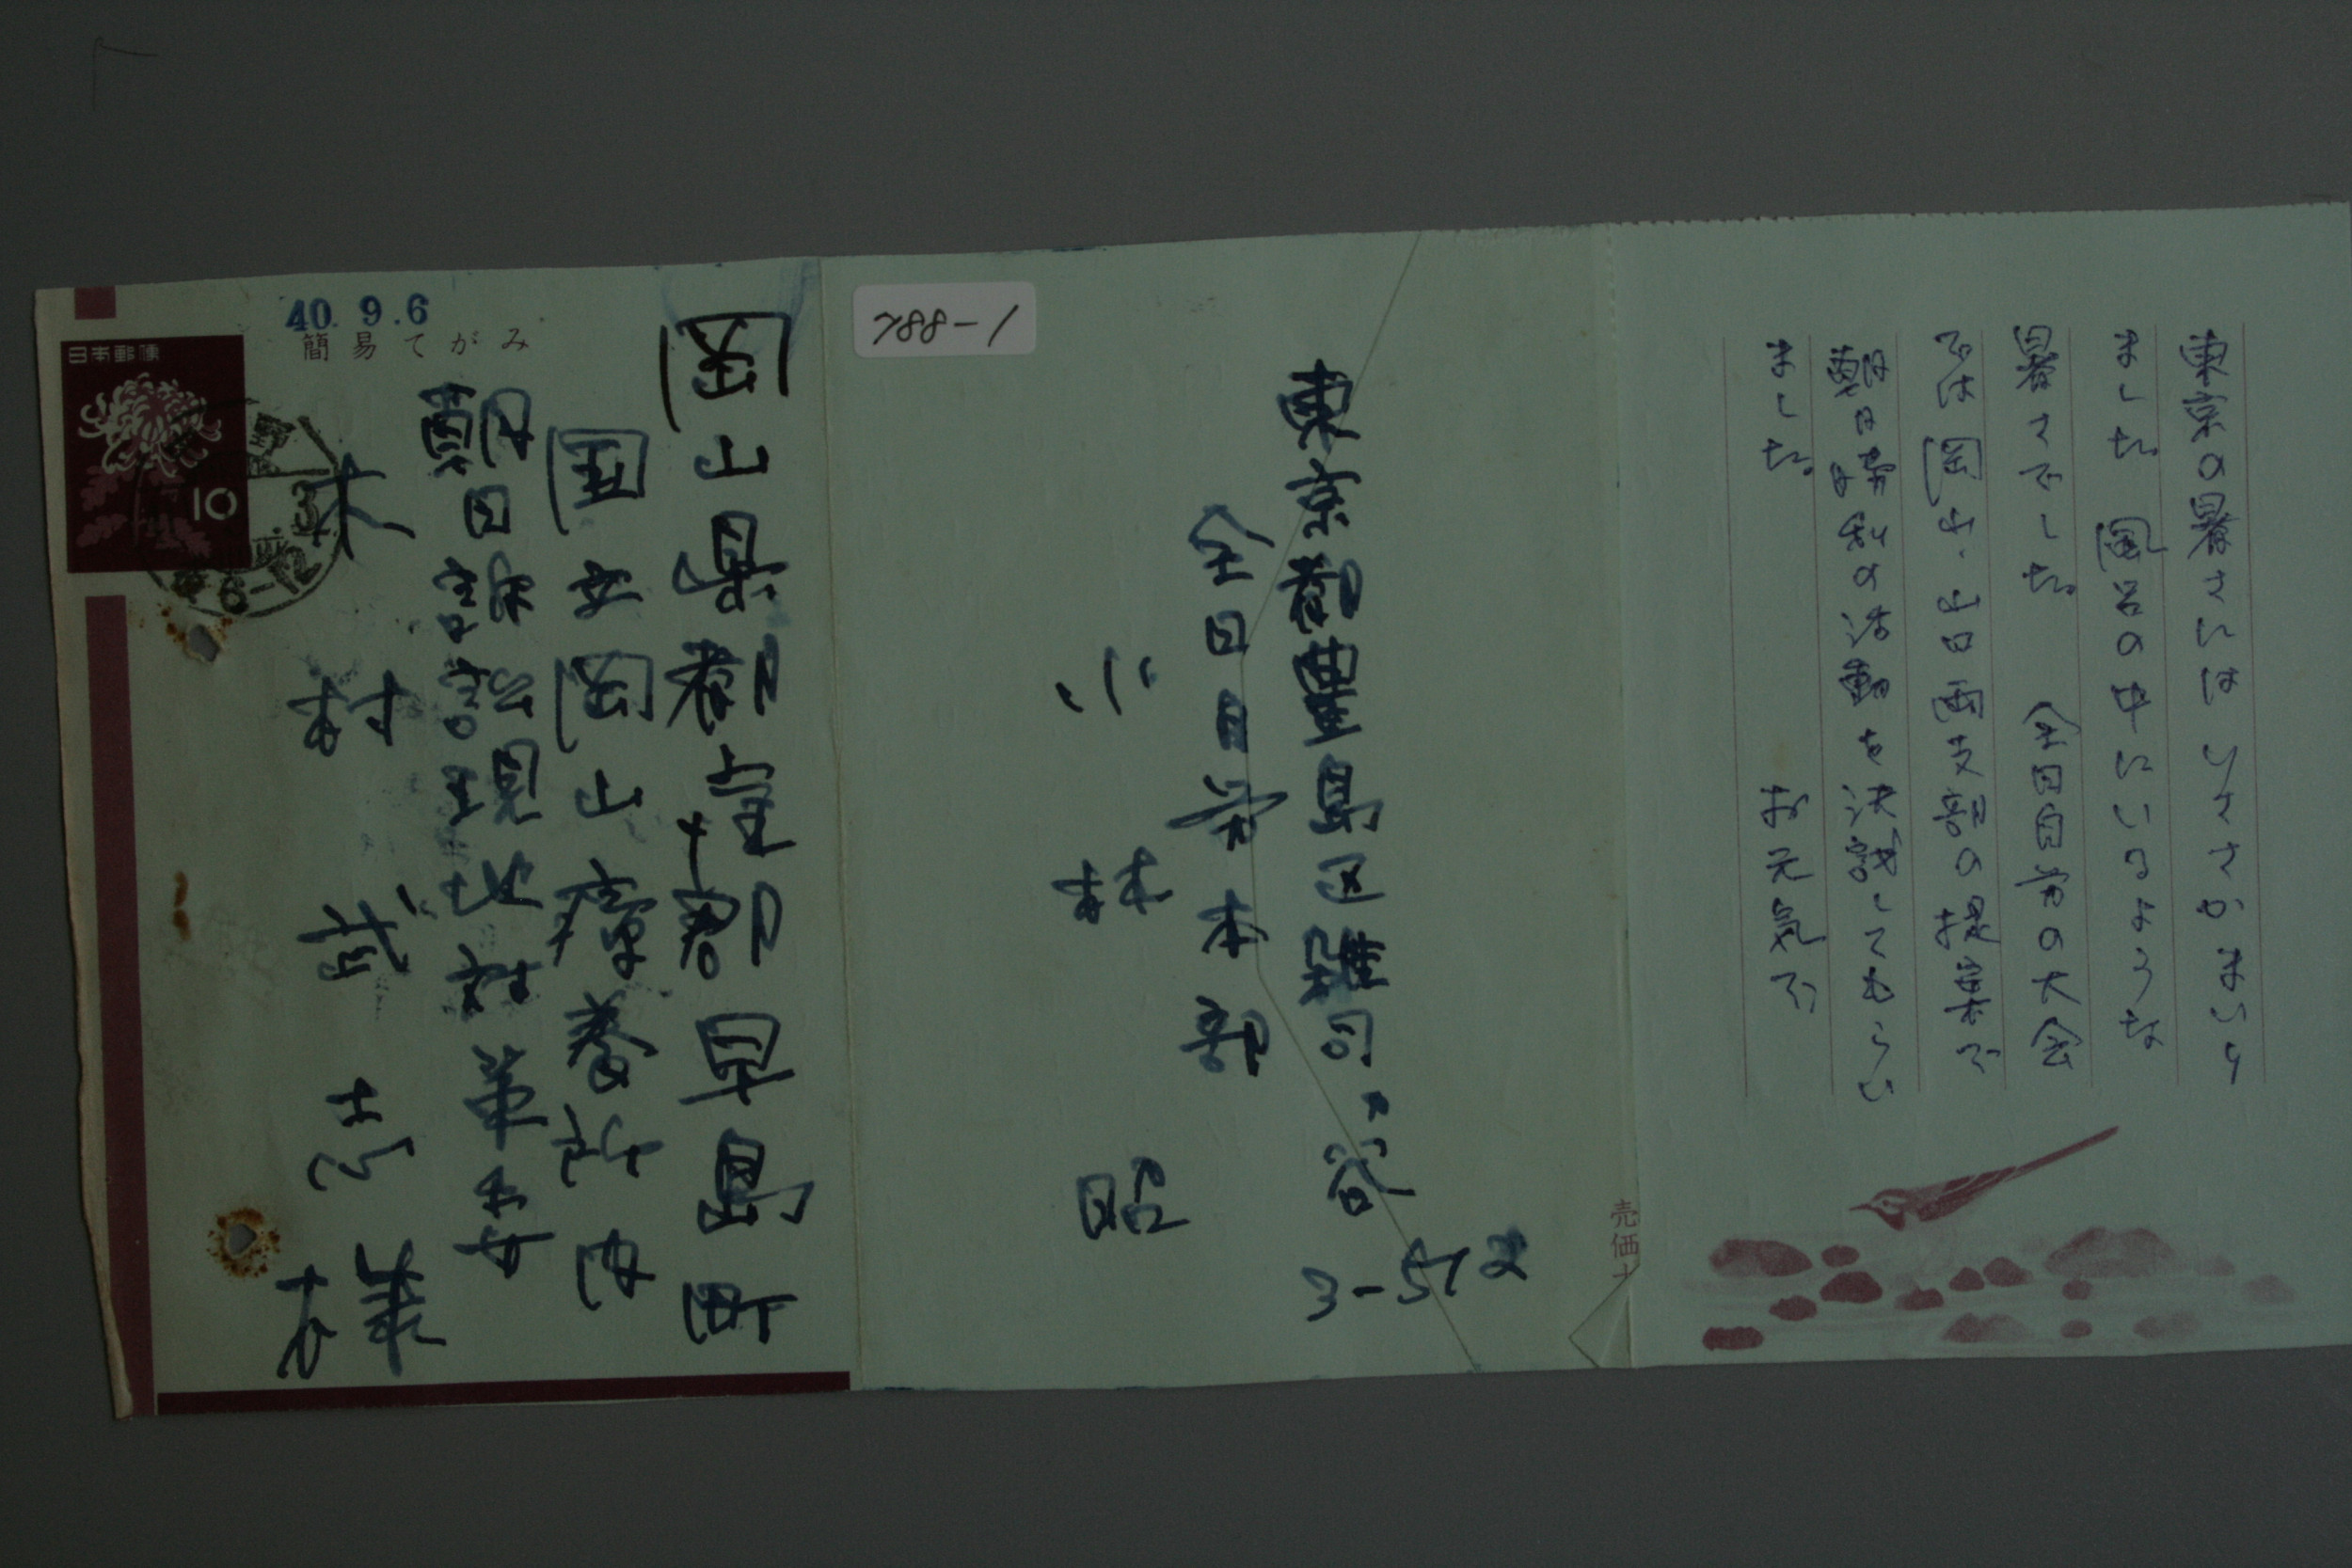 東京の暑さにはいささかまいり
ました。風呂の中にいるような
暑さでした。全日自労の大会
では岡山・出日両支部の提案で
朝日勝利の活動を決議してもらい
ました。
お元気で
売価
東京都豊島区雑司ヶ谷
3-572
全日自労本部
小林昭
788-1
岡山県都窪郡早島町
国立岡山療養所内
朝日訴訟現地対策委
木村武志様
簡易てがみ
40.9.6
日本郵便
10
野
6-12